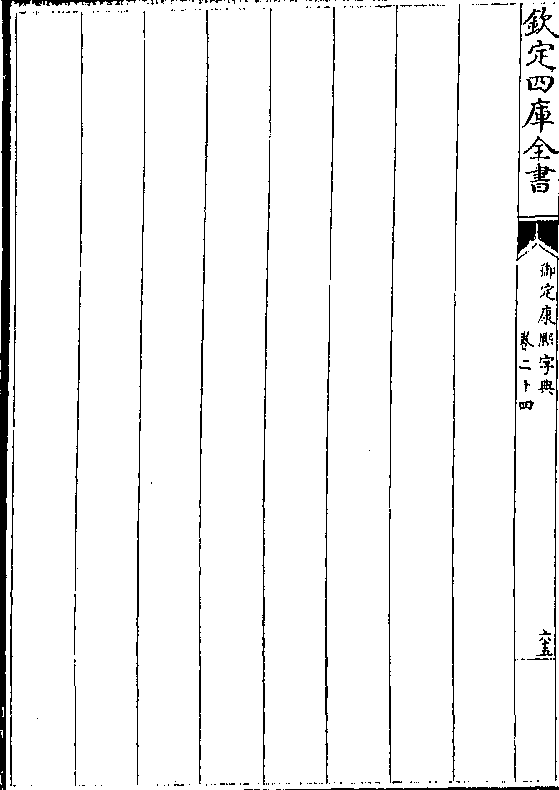 欽定四庫全書
御定康熙字典
卷二十四
六五